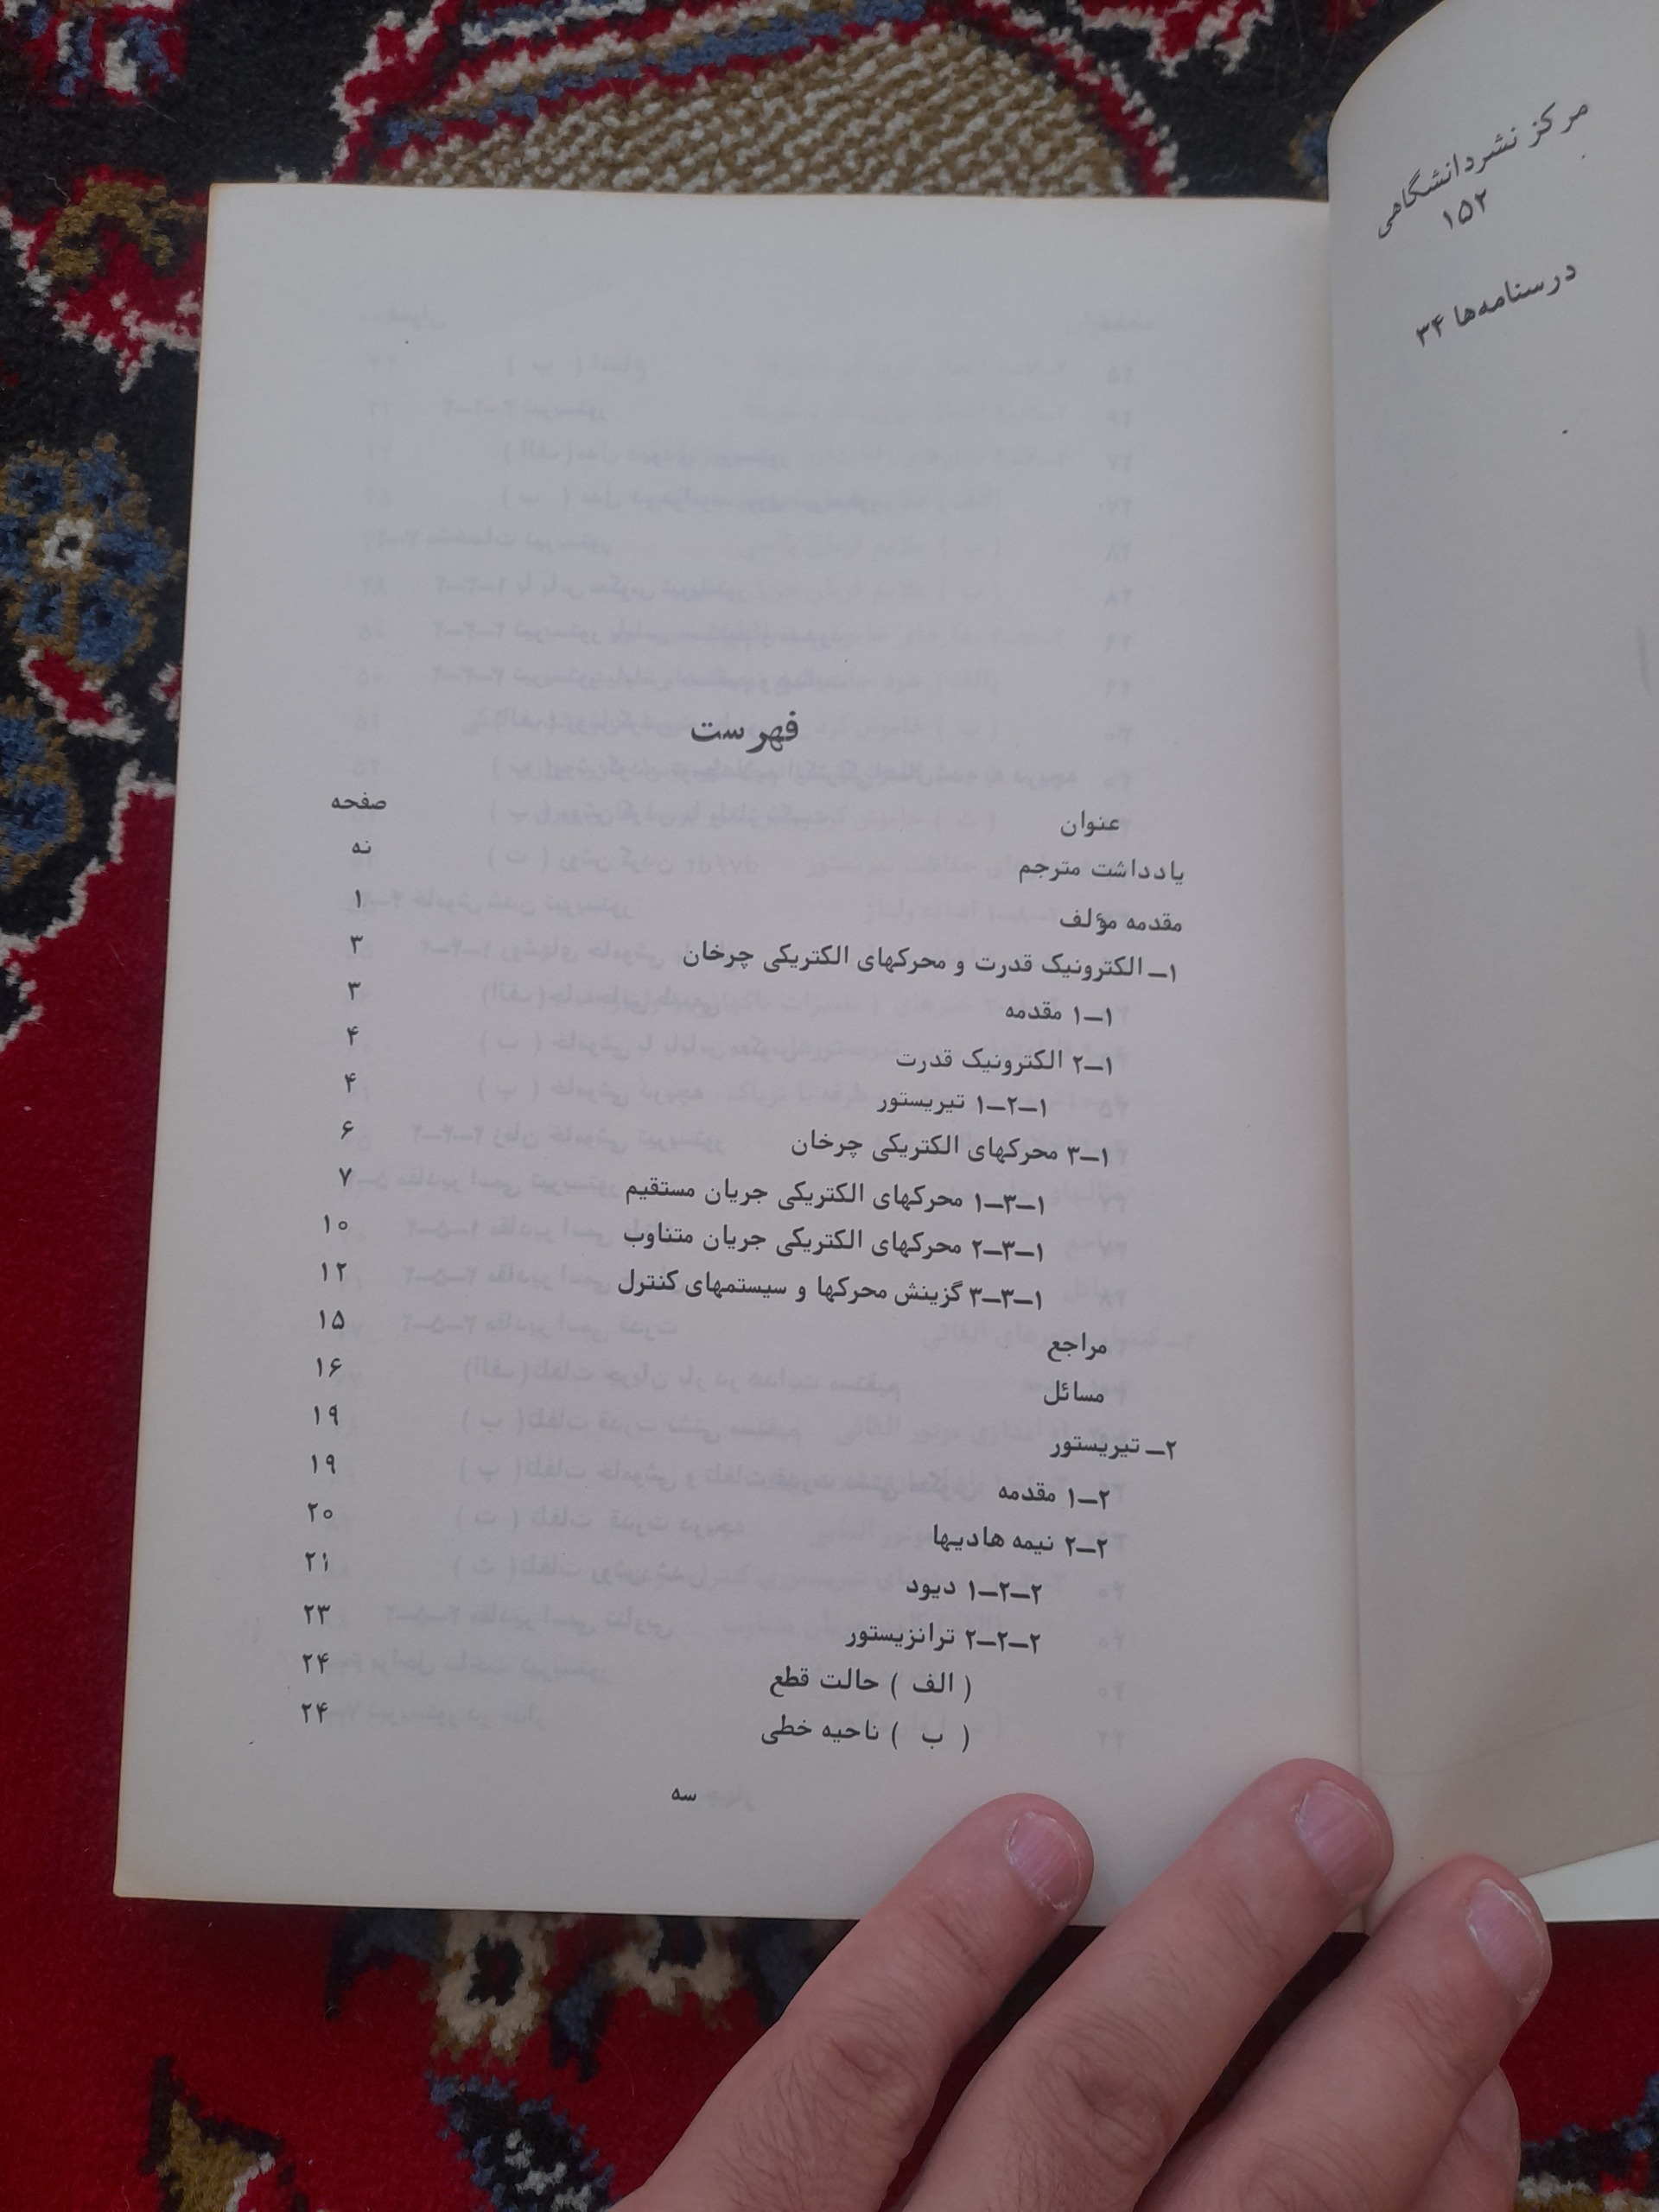 مرکز نشردانشگاهی
۱۵۲
درسنامه‌ها ۳۴
فهرست
عنوان صفحه
یادداشت مترجم نه
مقدمه مؤلف ۱
۱ــ الکترونیک قدرت و محرکهای الکتریکی چرخان ۳
۱ــ۱ مقدمه ۳
۱ــ۲ الکترونیک قدرت ۴
۱ــ۲ــ۱ تیریستور ۴
۱ــ۳ محرکهای الکتریکی چرخان ۶
۱ــ۳ــ۱ محرکهای الکتریکی جریان مستقیم ۷
۱ــ۳ــ۲ محرکهای الکتریکی جریان متناوب ۱۰
۱ــ۳ــ۳ گزینش محرکها و سیستمهای کنترل ۱۲
مراجع ۱۵
مسائل ۱۶
۲ــ تیریستور ۱۹
۲ــ۱ مقدمه ۱۹
۲ــ۲ نیمه هادیها ۲۰
۲ــ۲ــ۱ دیود ۲۱
۲ــ۲ــ۲ ترانزیستور ۲۳
( الف ) حالت قطع ۲۴
( ب ) ناحیه خطی ۲۴
سه